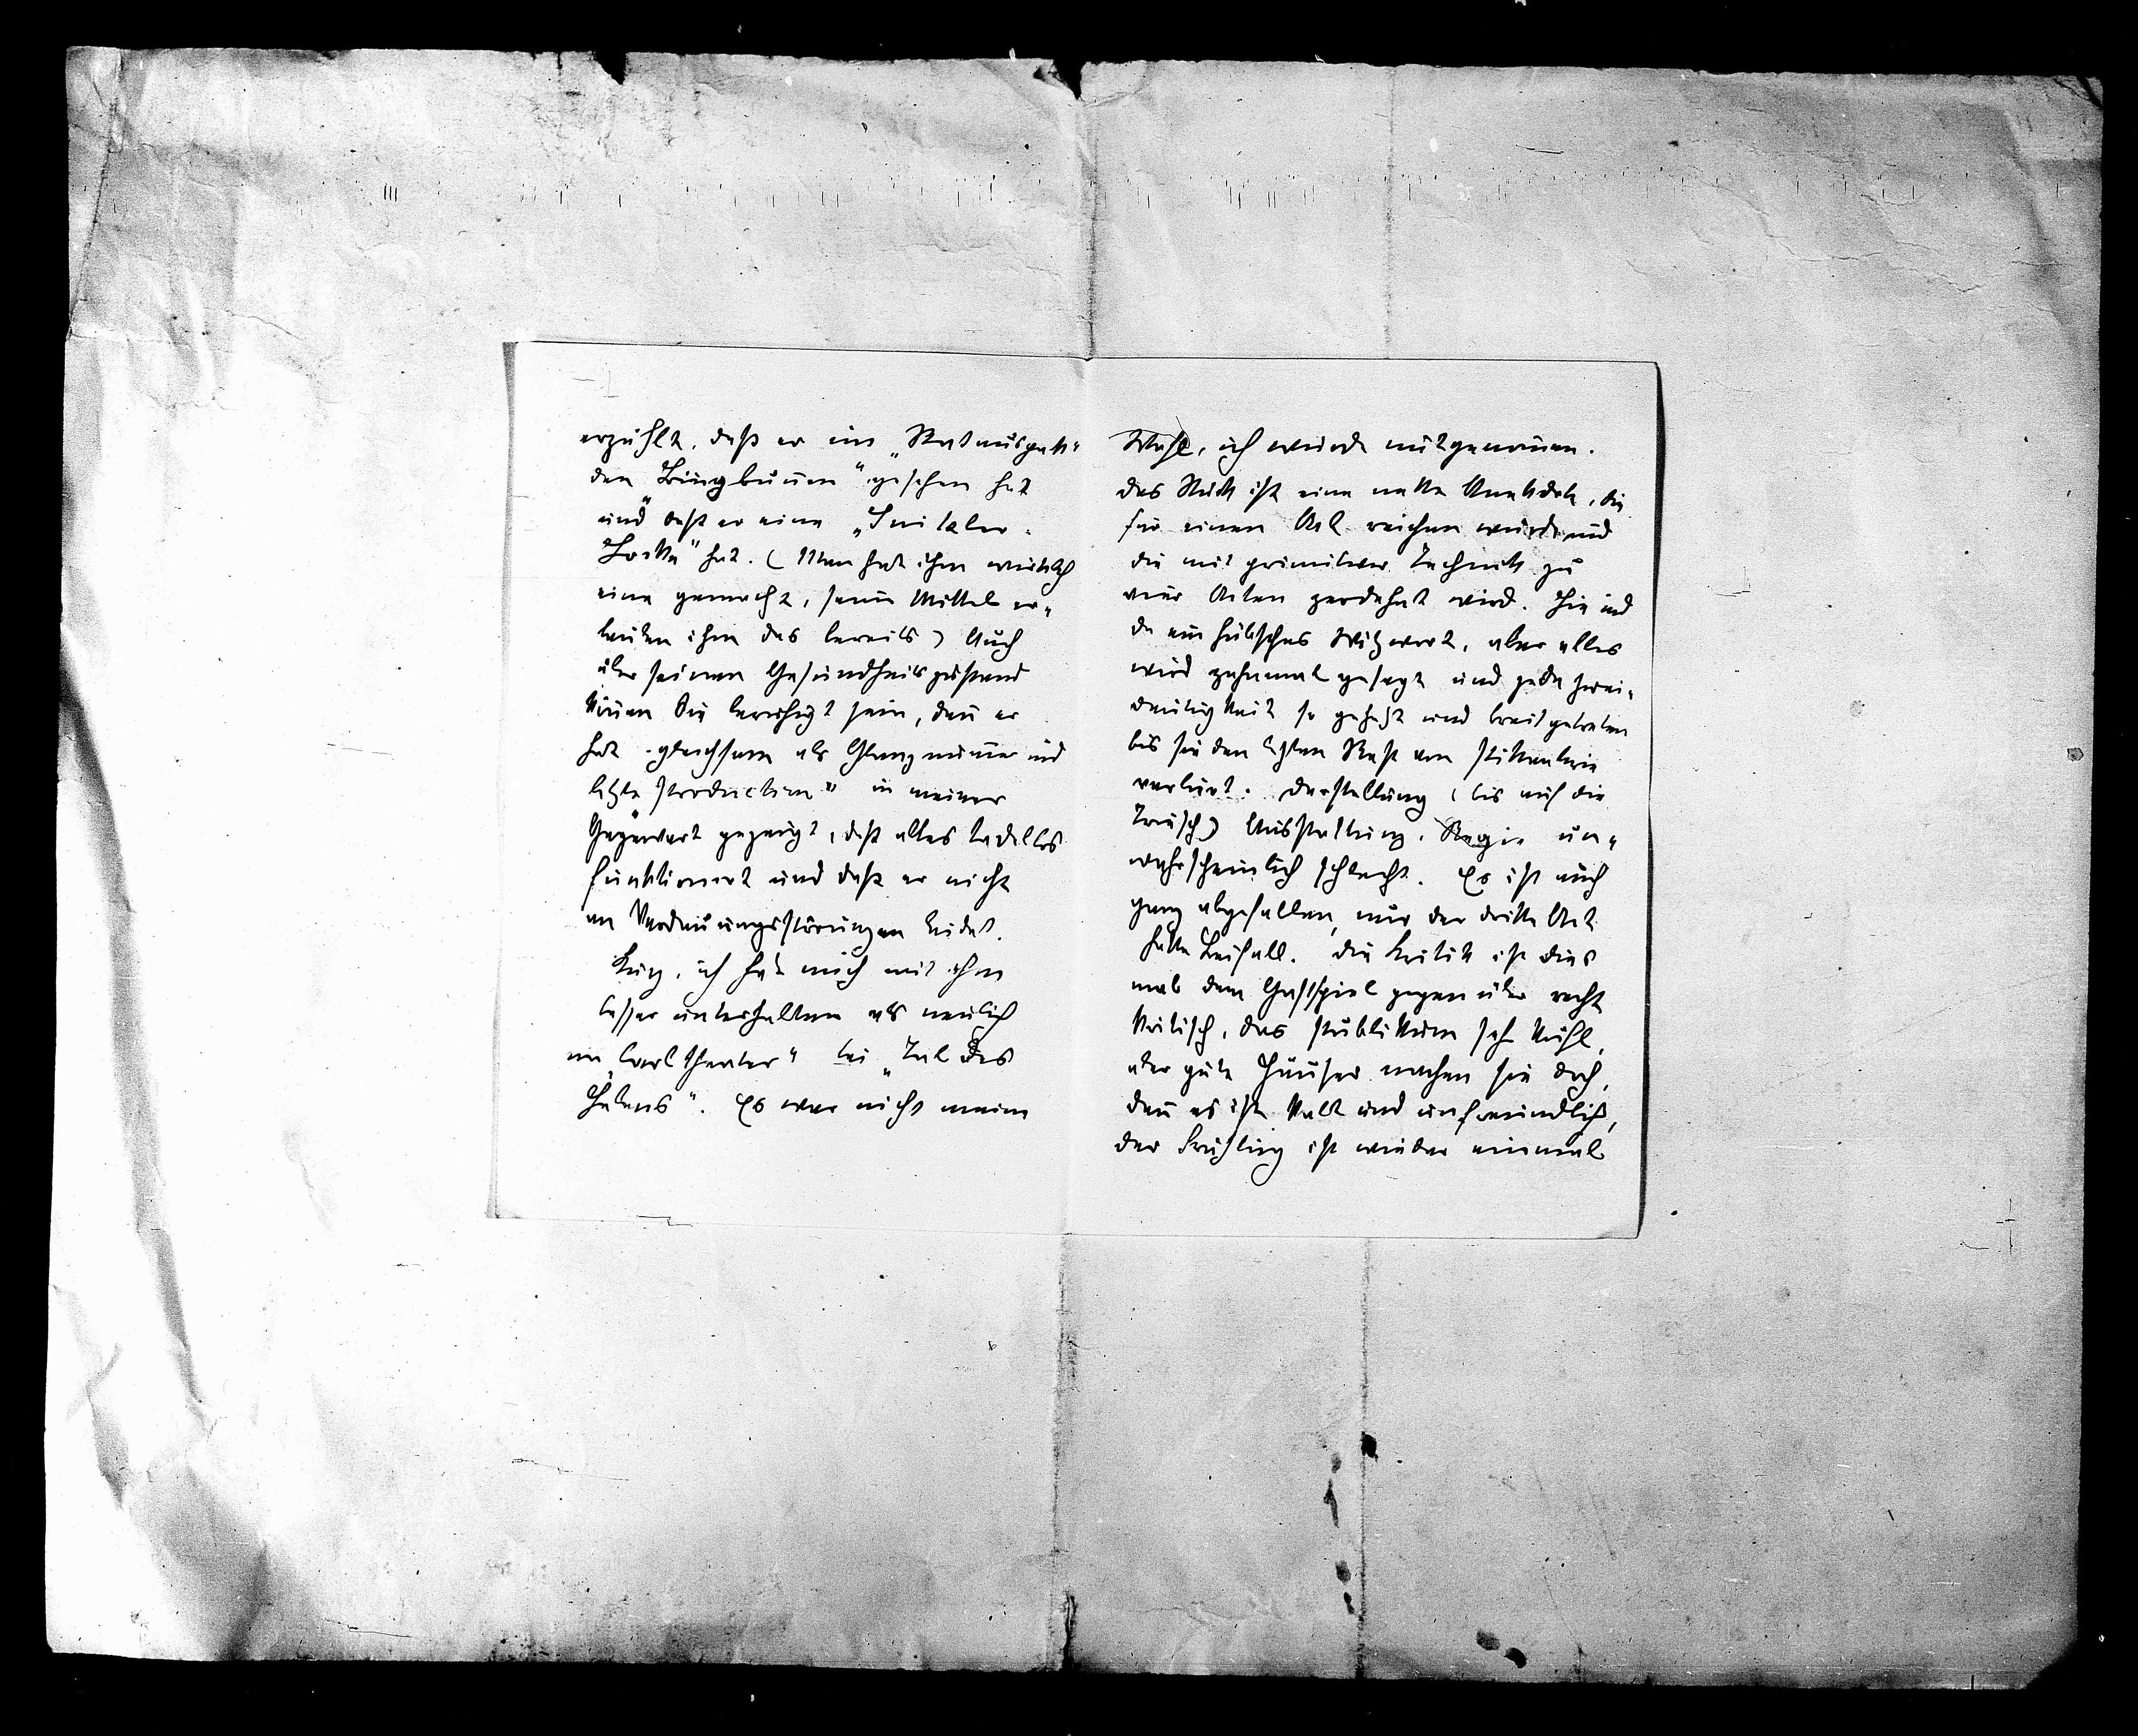 erzählt, daß er im „Rathauspark"
den „Bingbaum" gesehen hat
und daß er eine „Tuitaler-
Locke" hat. (Man hat ihm wirklich
eine gemacht, seine Mittel er-
lauben ihm das bereits) Auch
über seinen Gesundheitszustand
können Sie beruhigt sein, denn er
hat gleichsam als Glanznummer und
letzte „Production" in meiner
Gegenwart gezeigt, daß alles tadellos
funktioniert und daß er nicht
an Verdauungsstörungen leidet.
Kurz, ich hab mich mit ihm
besser unterhalten als neulich
im „Carltheater" bei „Tal des
Lebens". Es war nicht meine
Wahl, ich wurde mitgenommen.
Das Stück ist eine nette Anekdote, die
für einen Akt reichen würde und
die mit primitiver Technik zu
vier Akten zerdehnt wird. Hie und
da ein hübsches Witzwort, aber alles
wird zehnmal gesagt und jede Zwei-
deutigkeit so gehetzt und breitgetreten
bis sie den letzten Rest von Pikanterie
verliert. Darstellung (bis auf die
Triesch) Ausstattung, Regie un-
wahrscheinlich schlecht. Es ist auch
ganz abgefallen, nur der dritte Akt
hatte Beifall. Die Kritik ist dies
mal dem Gastspiel gegenüber recht
kritisch, das Publikum sehr kühl,
aber gute Häuser machen sie doch,
denn es ist kalt und unfreundlich,
der Frühling ist wieder einmal